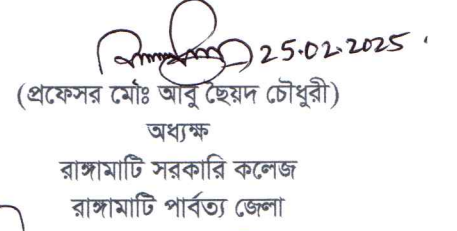 25.02.2025
(প্রফেসর মোঃ আবু ছৈয়দ চৌধুরী)
অধ্যক্ষ
রাঙ্গামাটি সরকারি কলেজ
রাঙ্গামাটি পার্বত্য জেলা